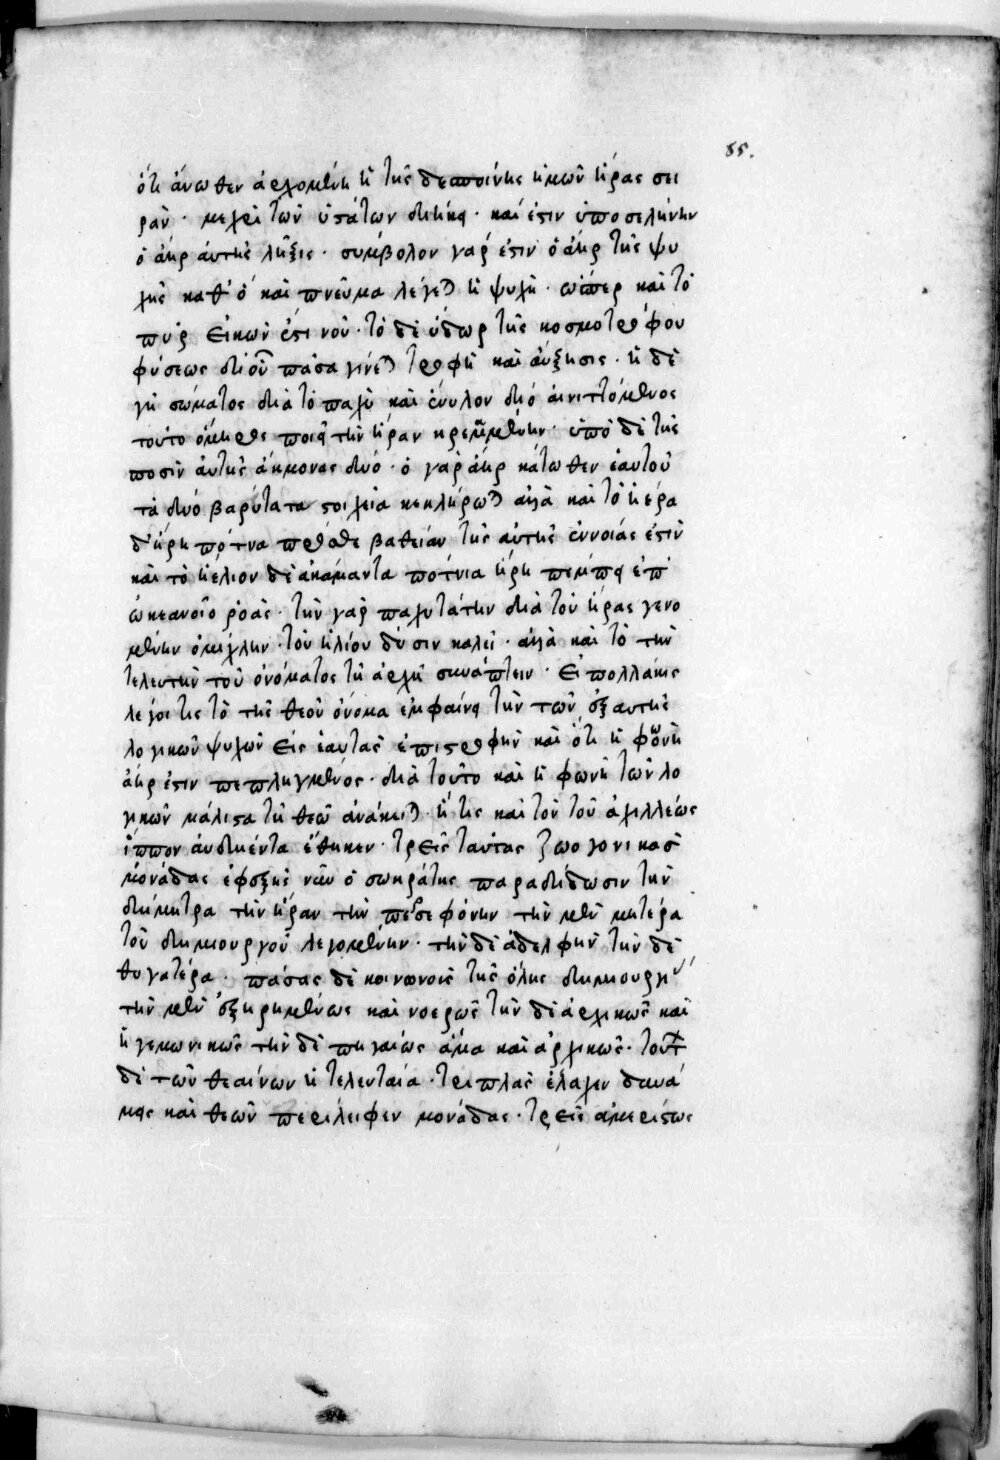 85.
ὅτι ἄνωθεν ἀρχομένη ἡ τῆς δεσποίνης ἡμῶν ἥρας σει
ρὰν · μέχρι τῶν ὑστάτων διήκει · καί ἐστιν ὑπὸ σελήνην
ὁ ἀὴρ αὐτῆς λῆξις · σύμβολον γάρ ἐστιν ὁ ἀὴρ τῆς ψυ
χῆς καθ' ὃ καὶ πνεῦμα λέγεται ἡ ψυχή · ὥσπερ καὶ τὸ
πῦρ εἰκών ἐστι νοῦ · τὸ δὲ ὕδωρ τῆς κοσμοτρόφου
φύσεως δι' οὗ πᾶσα γίνεται τροφὴ καὶ αὔξησις · ἡ δὲ
γῆ σώματος διὰ τὸ παχὺ καὶ ἔνυλον διὸ αἰνιττόμενος
τοῦτο ὅμηρος ποιεῖ τὴν ἥραν κρεμαμένην · ὑπὸ δὲ τῆς
ποσὶν αὐτῆς ἄκμονας δύο · ὁ γὰρ ἀὴρ κάτωθεν ἑαυτοῦ
τὰ δύο βαρύτατα στοιχεῖα κεκλήρωται ἀλλὰ καὶ τὸ ἠέρα
δ' ἥρη πότνα πρόσθε βαθεῖαν τῆς αὐτῆς ἐννοίας ἐστὶν
καὶ τὸ ἠέλιον δὲ ἀκάμαντα πότνια ἥρη πέμπει ἐπ'
ὠκεανοῖο ῥοάς · τὴν γὰρ παχυτάτην διὰ τοῦ ἥρας γενο
μένην ὁμίχλην · τοῦ ἡλίου δύσιν καλεῖ · ἀλλὰ καὶ τὸ τὴν
τελευτὴν τοῦ ὀνόματος τῇ ἀρχῇ συνάπτειν · εἰ πολλάκις
λέγοι τις τὸ τῆς θεοῦ ὄνομα ἐμφαίνει τὴν τῶν ἐξ αὐτῆς
λογικῶν ψυχῶν εἰς ἑαυτὰς ἐπιστροφὴν καὶ ὅτι ἡ φωνὴ
ἀήρ ἐστιν πεπληγμένος · διὰ τοῦτο καὶ ἡ φωνὴ τῶν λο
γικῶν μάλιστα τῇ θεῷ ἀνάκειται ἥ τις καὶ τὸν τοῦ ἀχιλλέως
ἵππον αὐδήεντα ἔθηκεν · τρεῖς ταύτας ζωογονικὰς
μονάδας ἐφεξῆς νῦν ὁ σωκράτης παραδίδωσιν τὴν
δήμητρα τὴν ἥραν τὴν περσεφόνην τὴν μὲν μητέρα
τοῦ δημιουργοῦ λεγομένην · τὴν δὲ ἀδελφὴν τὴν δὲ
θυγατέρα · πάσας δὲ κοινωνοὺς τῆς ὅλης δημιουργί
τὴν μὲν ἐξῃρημένως καὶ νοερῶς τὴν δὲ ἀρχικῶς καὶ
ἡγεμονικῶς τὴν δὲ πηγαίως ἅμα καὶ ἀρχικῶς · τούτων
δὲ τῶν θεαίνων ἡ τελευταία · τριπλᾶς ἔλαχεν δυνά
μεις καὶ θεῶν περιείληφεν μονάδας · τρεῖς ἀμερίστως